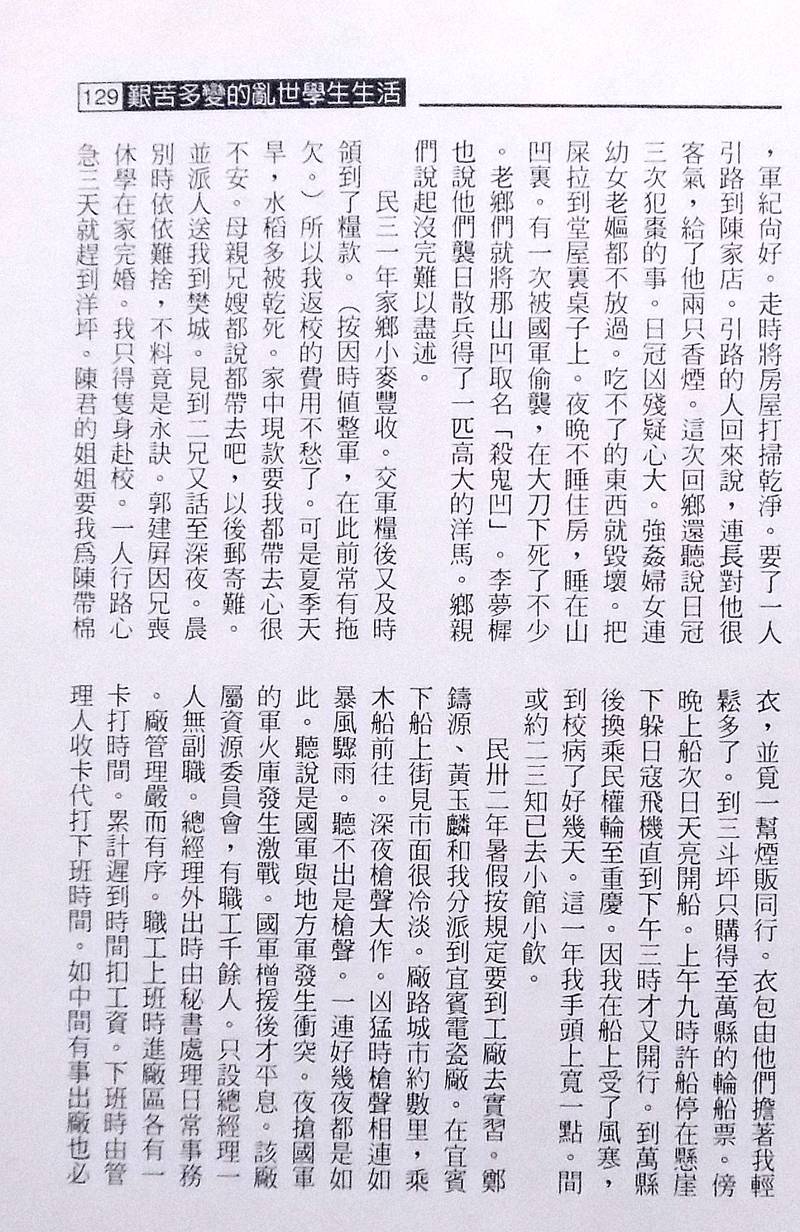 129 艱苦多變的亂世學生生活
，軍紀尙好。走時將房屋打掃乾淨。要了一人
引路到陳家店。引路的人回來說，連長對他很
客氣，給了他兩只香煙。這次回鄉還聽說日冠
三次犯棗的事。日冠凶殘疑心大。強姦婦女連
幼女老嫗都不放過。吃不了的東西就毀壞。把
屎拉到堂屋裏桌子上。夜晚不睡住房，睡在山
凹裏。有一次被國軍偷襲，在大刀下死了不少
。老鄉們就將那山凹取名「殺鬼凹」。李夢樨
也說他們襲日散兵得了一匹高大的洋馬。鄉親
們說起沒完難以盡述。
民三一年家鄉小麥豐收。交軍糧後又及時
領到了糧款。（按因時值整軍，在此前常有拖
欠。）所以我返校的費用不愁了。可是夏季天
旱，水稻多被乾死。家中現款要我都帶去心很
不安。母親兄嫂都說都帶去吧，以後郵寄難。
並派人送我到樊城。見到二兄又話至深夜。晨
別時依依難捨，不料竟是永訣。郭建屏因兄喪
休學在家完婚。我只得隻身赴校。一人行路心
急三天就趕到洋坪。陳君的姐姐要我爲陳帶棉
衣，並覓一幫煙販同行。衣包由他們擔著我輕
鬆多了。到三斗坪只購得至萬縣的輪船票。傍
晚上船次日天亮開船。上午九時許船停在懸崖
下躲日寇飛機直到下午三時才又開行。到萬縣
後換乘民權輪至重慶。因我在船上受了風寒，
到校病了好幾天。這一年我手頭上寬一點。間
或約二三知己去小館小飲。
民卅二年暑假按規定要到工廠去實習。鄭
鑄源、黃玉麟和我分派到宜賓電瓷廠。在宜賓
下船上街見市面很冷淡。廠路城市約數里，乘
木船前往。深夜槍聲大作。凶猛時槍聲相連如
暴風驟雨。聽不出是槍聲。一連好幾夜都是如
此。聽說是國軍與地方軍發生衝突。夜搶國軍
的軍火庫發生激戰。國軍橧援後才平息。該廠
屬資源委員會，有職工千餘人。只設總經理一
人無副職。總經理外出時由秘書處理日常事務
。廠管理嚴而有序。職工上班時進廠區各有一
卡打時間。累計遲到時間扣工資。下班時由管
理人收卡代打下班時間。如中間有事出廠也必